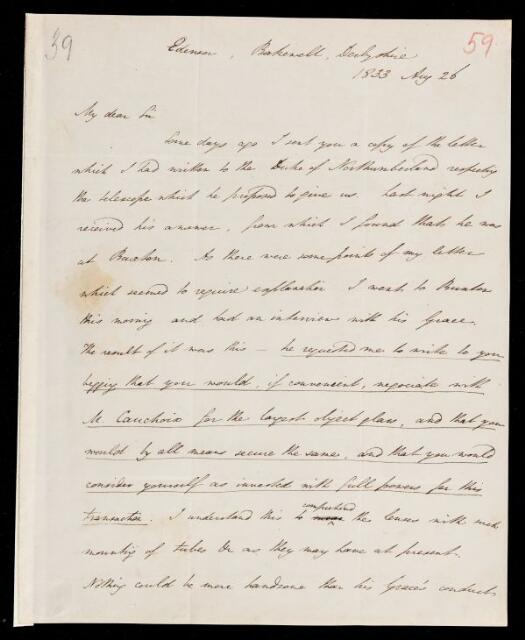 39
59
Edensor, Bakewell, Derbyshire
1833 Aug 26
My dear Sir
Some days ago I sent you a copy of the letter
which I had written to the Duke of Northumberland respecting
the telescope which he proposed to give us. Last night I
received his answer, from which I found that he was
at Buxton. As there were some points of my letter
which seemed to require explanation I went to Buxton
this morning and had an interview with his Grace.
The result of it was this — he requested me to write to you
begging that you would, if convenient, negociate with
M. Cauchoix for the largest object glass, and that you
would by all means secure the same, and that you would
consider yourself as invested with full powers for this
transaction. I understand this to comprehend the lenses with such
mounting of tubes &c as they may have at present.
Nothing could be more handsome than his Grace's conduct